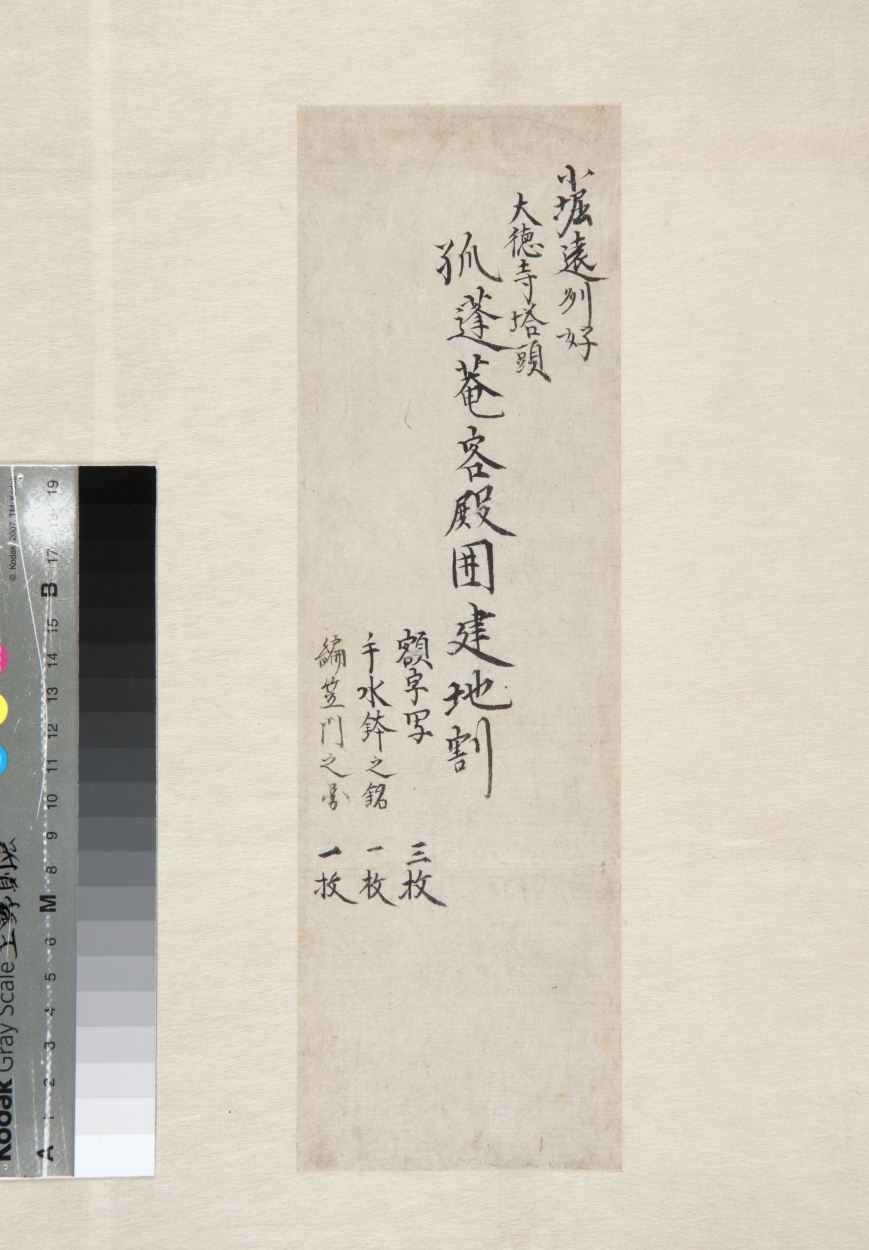 小堀遠州好
大徳寺塔頭
孤蓬菴客殿囲建地割
額字写 三枚
手水鉢之銘 一枚
編笠門之 一枚
© Kodak 2007 TM: Kodak
Kodak Gray Scale
A 1 2 3 4 5 6 M 8 9 10 11 12 13 14 15 B 17 19